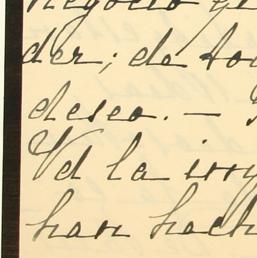 negocio
der; de to
deseo. —
Vd la irry
han hech